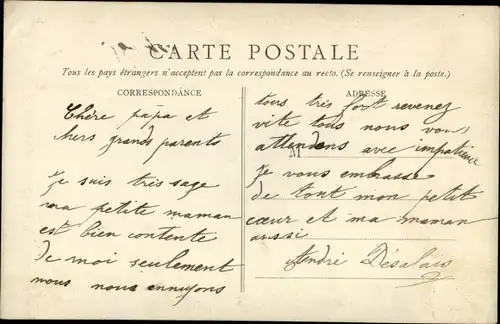 CARTE POSTALE
Tous les pays étrangers n'acceptent pas la correspondance au recto. (Se renseigner à la poste.)
CORRESPONDANCE
Chère papa et
chers grands parents
Je suis très sage
ma petite maman
est bien contente
de moi seulement
nous nous ennuyons
ADRESSE
M
tous très fort revenez
vite tous nous vous
attendons avec impatience
Je vous embrasse
de tout mon petit
cœur et ma maman
aussi
André Désalais